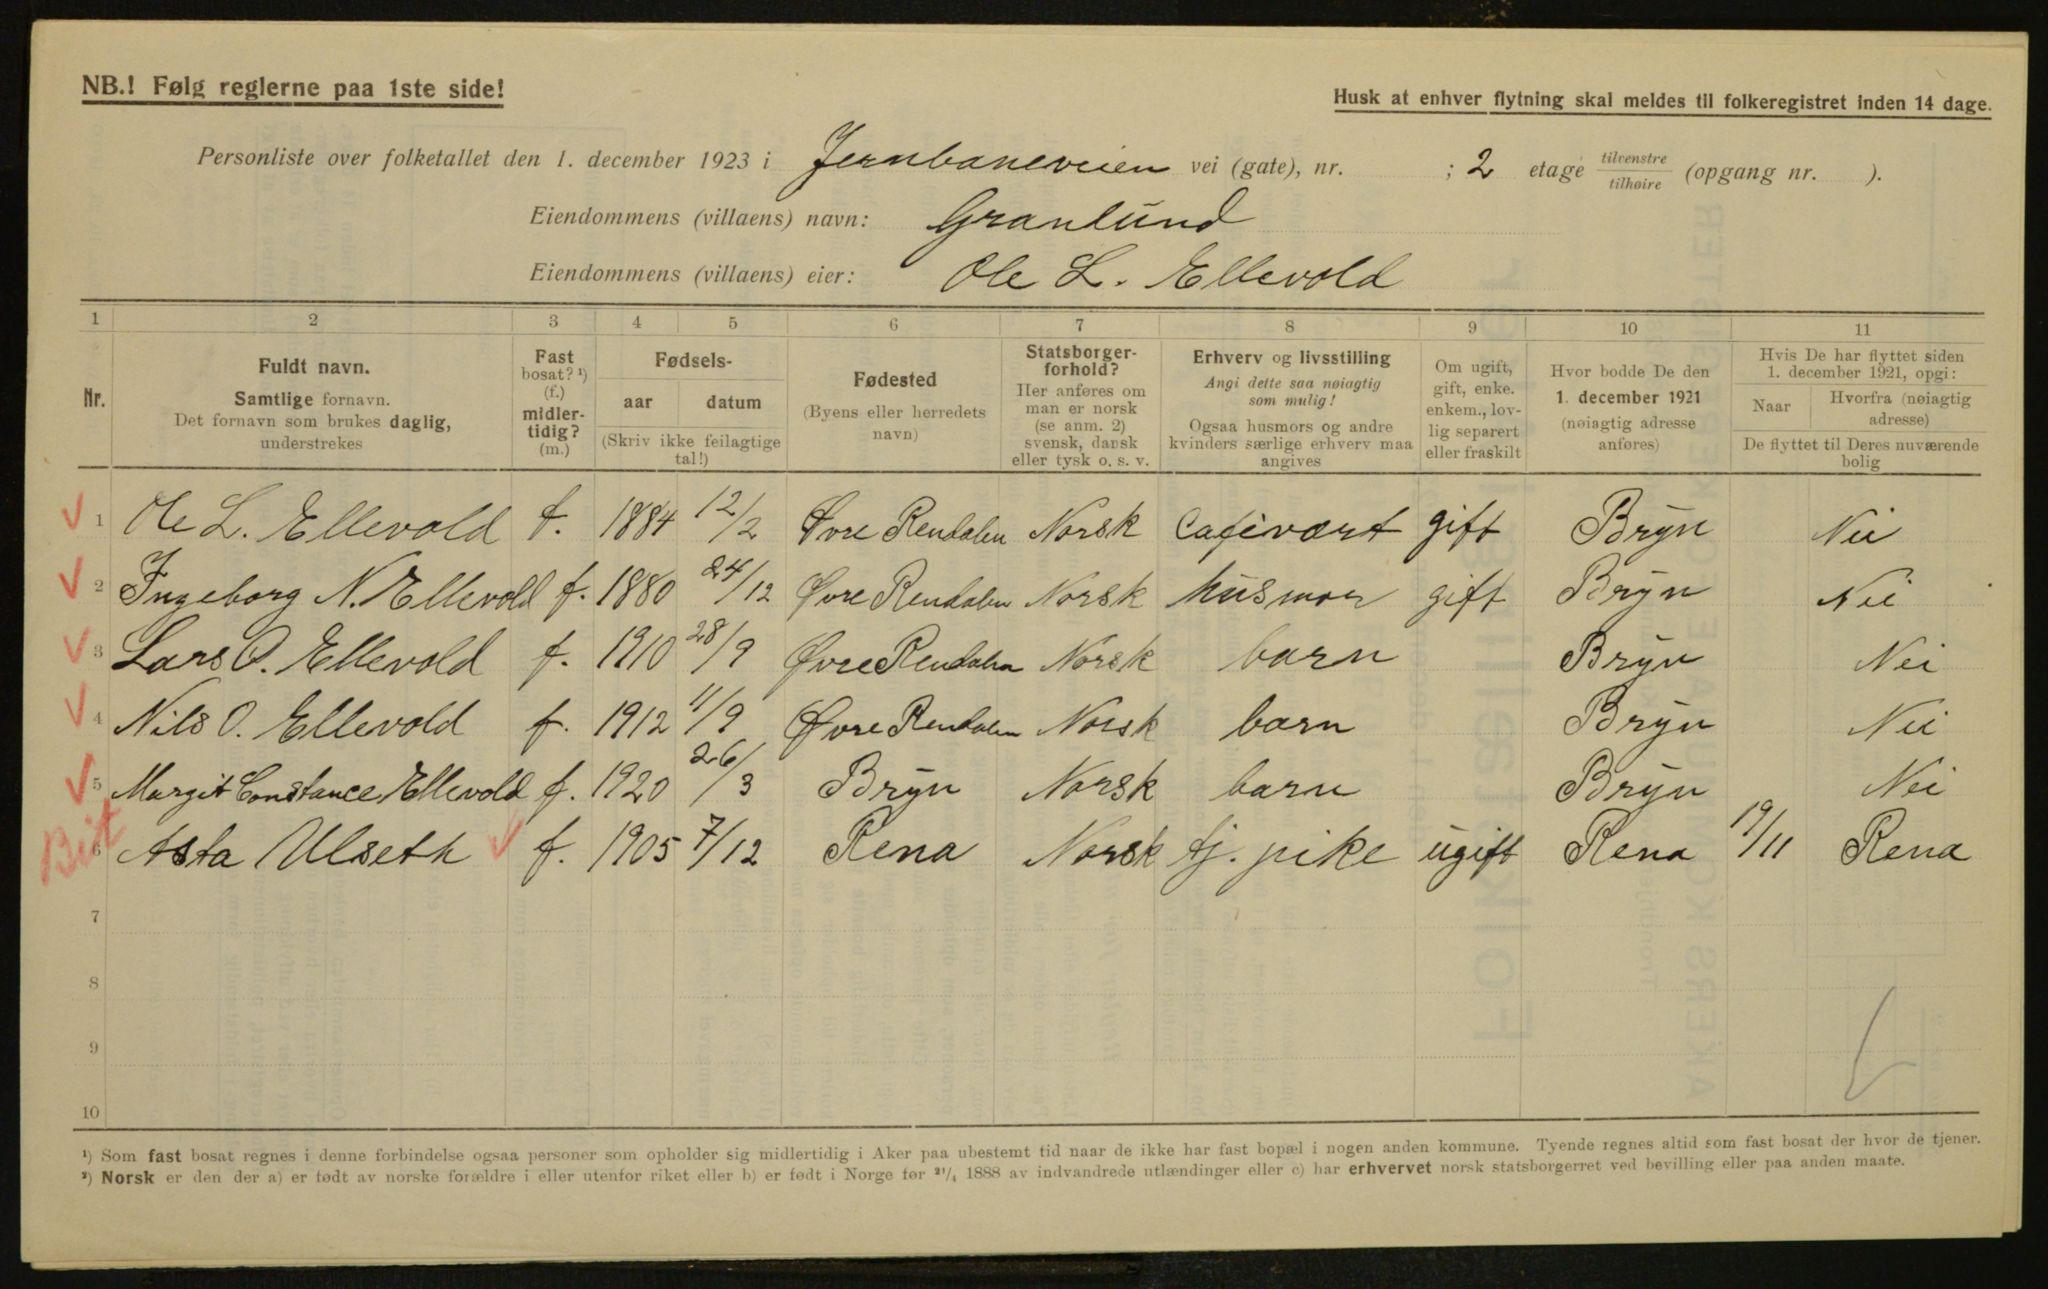 NB.! Følg reglerne paa 1ste side!
Husk at enhver flytning skal meldes til folkeregistret inden 14 dage.
Personliste over folketallet den 1. december 1923 i Jernbaneveien vei (gate), nr. ; 2 etage tilvenstre / tilhøire (opgang nr. ).
Eiendommens (villaens) navn: Granlund
Eiendommens (villaens) eier: Ole L. Ellevold
1 2 3 4 5 6 7 8 9 10 11
Nr.
Fuldt navn.
Samtlige fornavn.
Det fornavn som brukes daglig,
understrekes
Fast
bosat? ¹)
(f.)
midler-
tidig?
(m.)
Fødsels-
aar datum
(Skriv ikke feilagtige
tal!)
Fødested
(Byens eller herredets
navn)
Statsborger-
forhold?
Her anføres om
man er norsk
(se anm. 2)
svensk, dansk
eller tysk o. s. v.
Erhverv og livsstilling
Angi dette saa nøiagtig
som mulig!
Ogsaa husmors og andre
kvinders særlige erhverv maa
angives
Om ugift,
gift, enke.
enkem., lov-
lig separert
eller fraskilt
Hvor bodde De den
1. december 1921
(nøiagtig adresse
anføres)
Hvis De har flyttet siden
1. december 1921, opgi:
Naar
Hvorfra (nøiagtig
adresse)
De flyttet til Deres nuværende
bolig
1 Ole L. Ellevold f. 1884 12/2 Øvre Rendalen Norsk Cafévært gift Bryn Nei
2 Ingeborg N. Ellevold f. 1880 24/12 Øvre Rendalen Norsk husmor gift Bryn Nei
3 Lars O. Ellevold f. 1910 28/9 Øvre Rendalen Norsk barn Bryn Nei
4 Nils O. Ellevold f. 1912 11/9 Øvre Rendalen Norsk barn Bryn Nei
5 Margit Constance Ellevold f. 1920 26/3 Bryn Norsk barn Bryn Nei
6 Asta Ulseth f. 1905 7/12 Rena Norsk tj. pike ugift Rena 19/11 Rena
7
8
9
10
¹) Som fast bosat regnes i denne forbindelse ogsaa personer som opholder sig midlertidig i Aker paa ubestemt tid naar de ikke har fast bopæl i nogen anden kommune. Tyende regnes altid som fast bosat der hvor de tjener.
²) Norsk er den der a) er født av norske forældre i eller utenfor riket eller b) er født i Norge før ²¹/₄ 1888 av indvandrede utlændinger eller c) har erhvervet norsk statsborgerret ved bevilling eller paa anden maate.